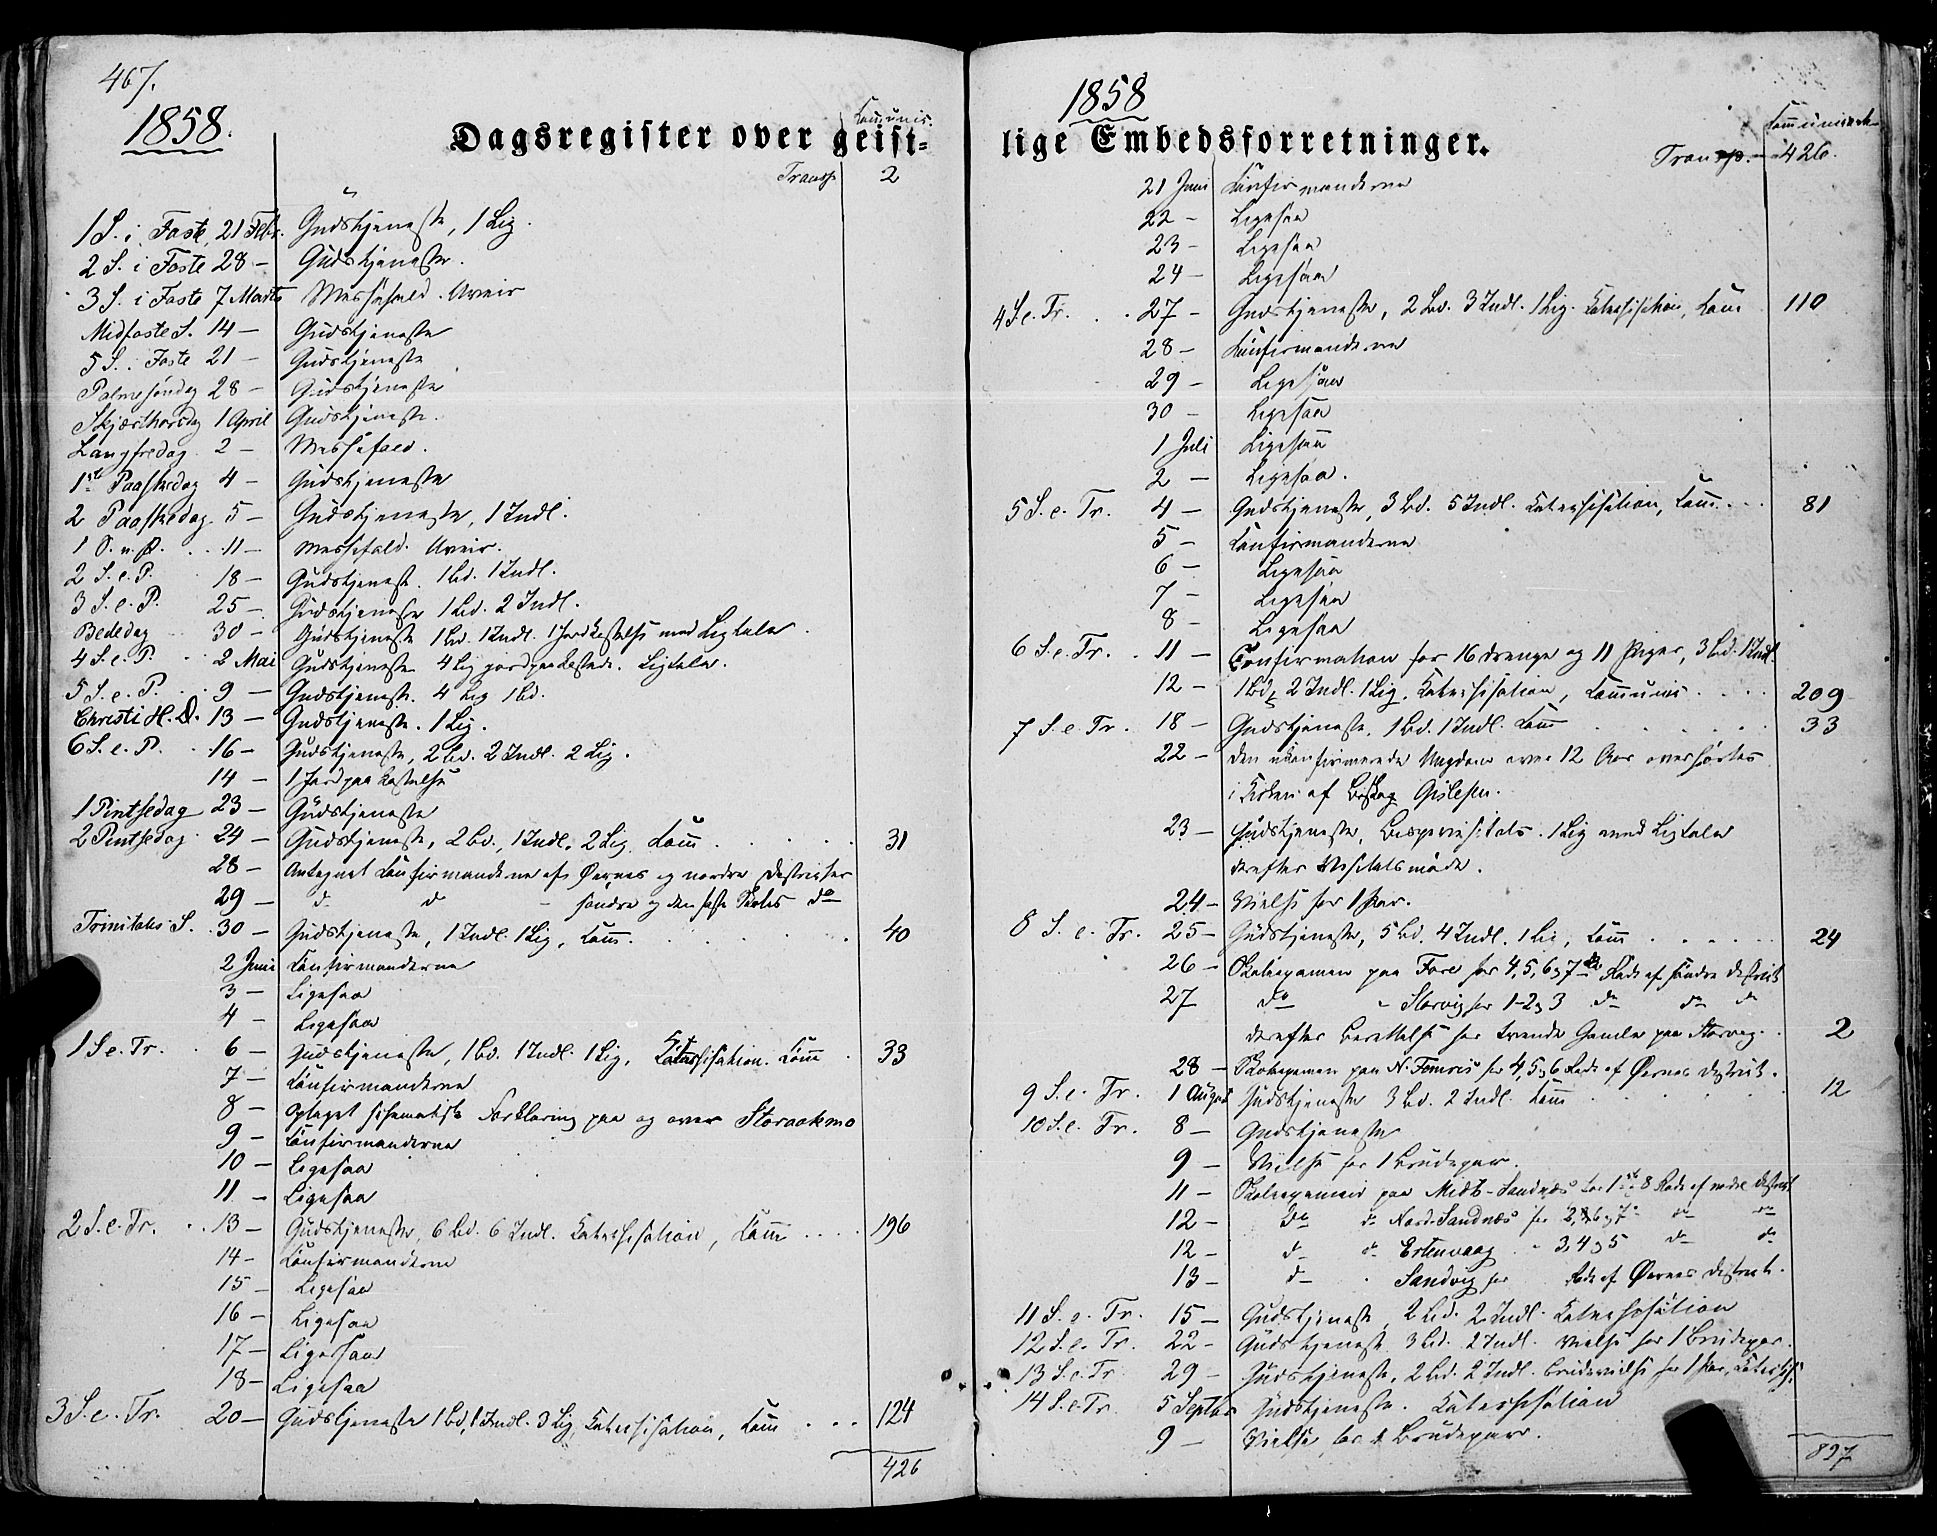 467.
1858.
Dagsregister over geist-
Communic.
Transp. 2
1 S. i Faste, 21 Febr. Gudstjeneste, 1 Lig.
2 S. i Faste 28 – Gudstjeneste.
3 S. i Faste 7 Marts Messefald. Uveir
Midfaste S. 14 – Gudstjeneste
5 S. i Faste 21 – Gudstjeneste
Palmesöndag 28 – Gudstjeneste
Skjærthorsdag 1 April Gudstjeneste.
Langfredag 2 – Messefald.
1ste Paaskedag 4 – Gudstjeneste
2 Paaskedag 5 – Gudstjeneste, 1 Indl.
1 S. e. P. . . 11 – Messefald. Uveir.
2 S. e. P. 18 – Gudstjeneste. 1 Bd. 1 Indl.
3 S. e. P. 25 – Gudstjeneste 1 Bd. 2 Indl.
Bededag 30 – Gudstjeneste 1 Bd. 1 Indl. 1 Jordfæstelse med Ligtale.
4 S. e. P. . . 2 Mai Gudstjeneste 4 Lig jordpaakastede. Ligtale.
5 S. e. P. . . 9 – Gudstjeneste. 4 Lig 1 Bd.
Christi H. D. 13 – Gudstjeneste. 1 Lig.
6 S. e. P. . 16 – Gudstjeneste, 2 Bd. 2 Indl. 2 Lig.
14 – 1 Jordpaakastelse
1 Pintsedag 23 – Gudstjeneste
2 Pintsedag 24 – Gudstjeneste, 2 Bd., 1 Indl. 2 Lig. Comm. . . . . . 31
28 – Antegnet Confirmanderne af Ørnes og nordre Districter
29 – d d – søndre og den faste Skoles do
Trinitatis S. . 30 – Gudstjeneste, 1 Indl. 1 Lig, Comm. . . . . . 40
2 Juni Confirmanderne
3 – Ligesaa
4 – Ligesaa
1 S e. Tr. . 6 – Gudstjeneste, 1 Bd. 1 Indl. 1 Lig. Catechisation. Comm . 33
7 – Confirmanderne
8 – Optaget Forklaring paa og over Storaakmo
9 – Confirmanderne
10 – Ligesaa
11 – Ligesaa
2 S. e. Tr. . . 13 – Gudstjeneste, 6 Bd. 6 Indl. Catechisation, Comm . . . . 196
14 – Confirmanderne
15 – Ligesaa
16 – Ligesaa
17 – Ligesaa
18 – Ligesaa
3 S. e. Tr. 20 – Gudstjeneste 1 Bd, 1 Indl. 3 Lig, Catechisation, Comm . . . 124
426
1858
lige Embedsforretninger.
Communicerede
Transp. – 426.
21 Juni Confirmanderne
22 – Ligesaa
23 – Ligesaa
24 – Ligesaa
4 S. e. Tr. . . 27 – Gudstjeneste, 2 Bd. 3 Indl. 1 Lig. Catechisation, Comm 110
28 – Confirmanderne
29 – Ligesaa
30 – Ligesaa
1 Juli Ligesaa
2 – Ligesaa.
5 S. e. Tr. 4 – Gudstjeneste, 3 Bd. 5 Indl. Catechisation, Comm . . . 81
5 – Confirmanderne
6 – Ligesaa
7 – Ligesaa
8 – Ligesaa
6 S. e. Tr. . 11 – Confirmation for 16 Drenge og 11 Piger, 3 Bd. 1 Indl
12 – 1 Bd, 2 Indl. 1 Lig. Catechisation, Communic . . . . 209
7 S. e Tr. 18 – Gudstjeneste, 1 Bd. 1 Indl. Comm . . . . . 33
22 – Den ukonfirmerede Ungdom over 12 Aar overhørtes
i Kirken af Biskop Gislesen.
23 – Gudstjeneste, Bispevisitats. 1 Lig med Ligtale
derefter Visitatsmøde.
24 – Vielse for 1 Par.
8 S. e. Tr. 25 – Gudstjeneste, 5 Bd. 4 Indl. 1 Lig, Comm . . . . . 24
26 – Skoleexamen paa Fore for 4, 5, 6 og 7de Rode af søndre District
27 do – Storvig for 1-2 og 3 do do do
derefter Berettelse for tvende Gamle paa Storvig. . 2
28 – Skoleexamen paa N. Femris for 4, 5 og 6 Rode af Ørnes District.
9 S. e. Tr. 1 August Gudstjeneste 3 Bd. 2 Indl. Comm . . . . . 12
10 S. e. Tr. 8 – Gudstjeneste
9 – Vielse for 1 Brudepar.
11 – Skoleexamen paa Midt-Sandnæs for 1ste 8 Rode af nordl. District
12 – do do Nord-Sandnæs for 2, 6 og 7de do do
12 – do do Ertenvaag – 3, 4 og 5 do do
13 – do . Sandvig for Rode af Ørnes District.
11 S. e. Tr. 15 – Gudstjeneste, 2 Bd. 2 Indl. Catechisation
12 S. e. Tr. 22 – Gudstjeneste 3 Bd. 2 Indl. Vielse for 1 Brudepar.
13 S. e. Tr 29 – Gudstjeneste, 2 Bd. 2 Indl. Brudevielse for 1 Par, Catechis.
14 S. e. Tr. 5 Septbr Gudstjeneste. Catechisation
9 – Vielse for 1 Brudepar.
897